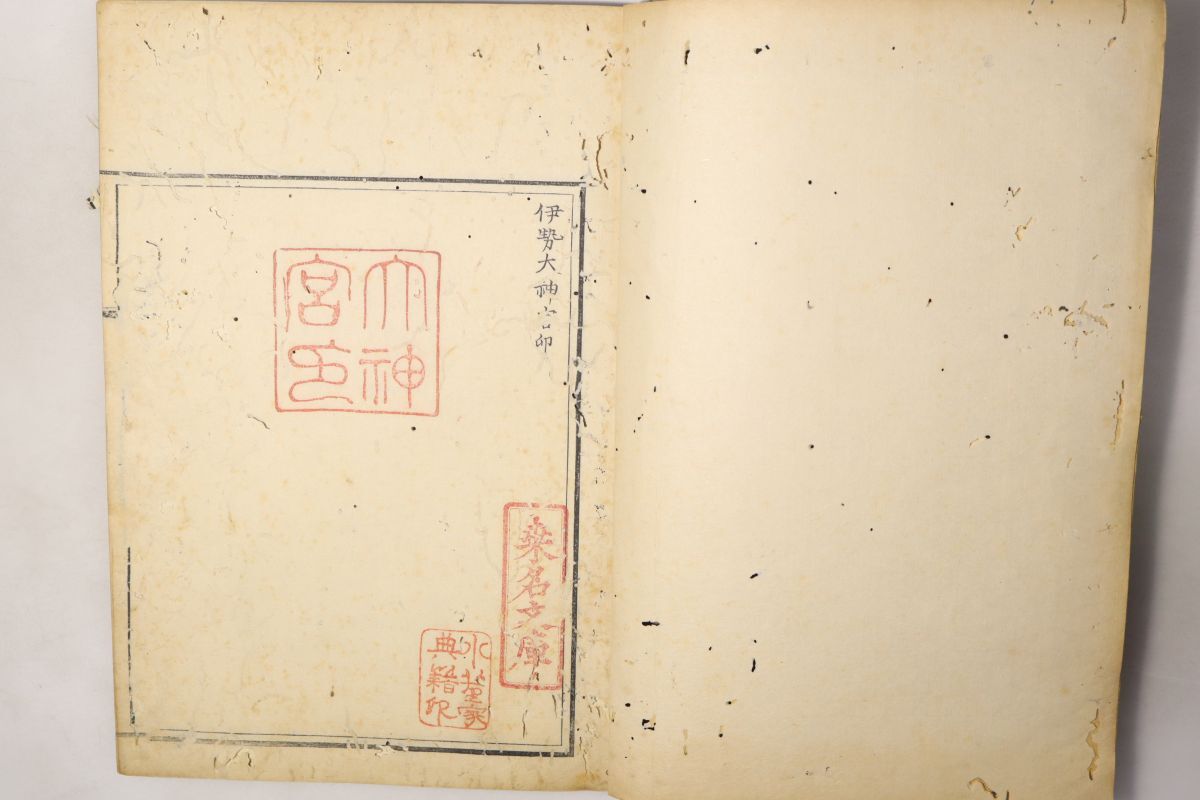 伊勢大神宮印
大神
宮印
桑名文庫
典籍印